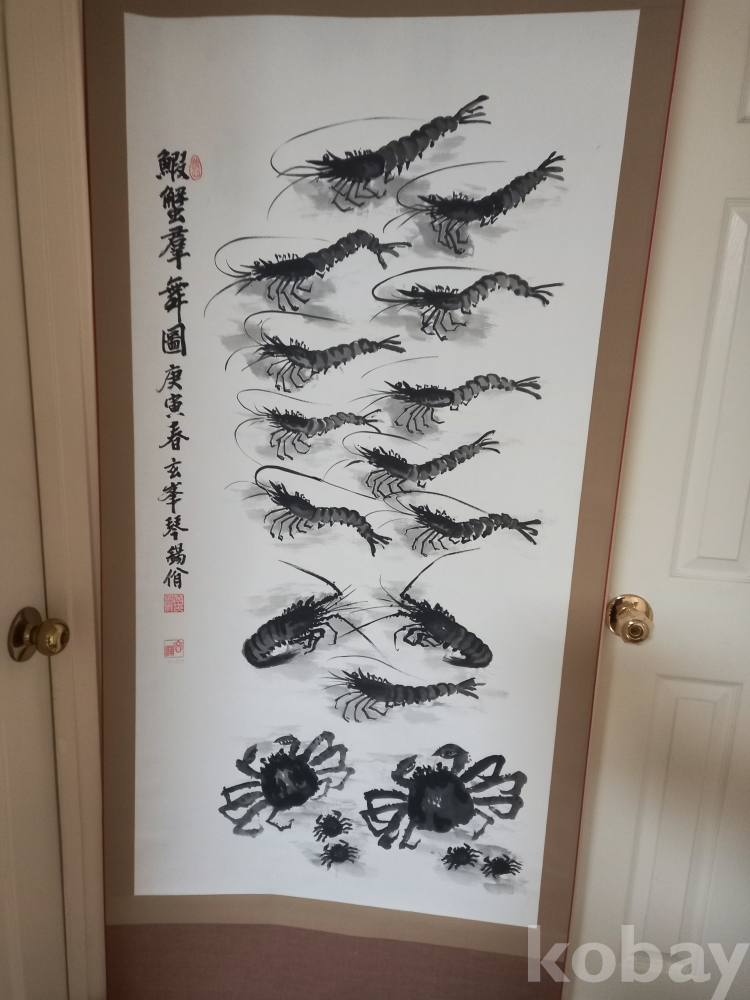 鰕蟹羣舞圖 庚寅春 玄峯 琴錫
kobay